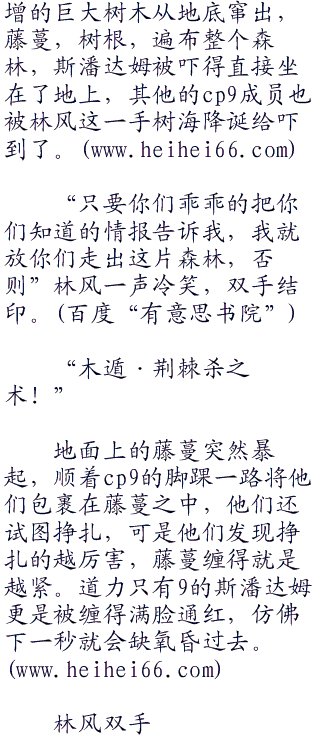 增的巨大树木从地底窜出，
藤蔓，树根，遍布整个森
林，斯潘达姆被吓得直接坐
在了地上，其他的cp9成员也
被林风这一手树海降诞给吓
到了。(www.heihei66.com)
“只要你们乖乖的把你
们知道的情报告诉我，我就
放你们走出这片森林，否
则”林风一声冷笑，双手结
印。(百度“有意思书院”)
“木遁·荆棘杀之
术！”
地面上的藤蔓突然暴
起，顺着cp9的脚踝一路将他
们包裹在藤蔓之中，他们还
试图挣扎，可是他们发现挣
扎的越厉害，藤蔓缠得就是
越紧。道力只有9的斯潘达姆
更是被缠得满脸通红，仿佛
下一秒就会缺氧昏过去。
(www.heihei66.com)
林风双手